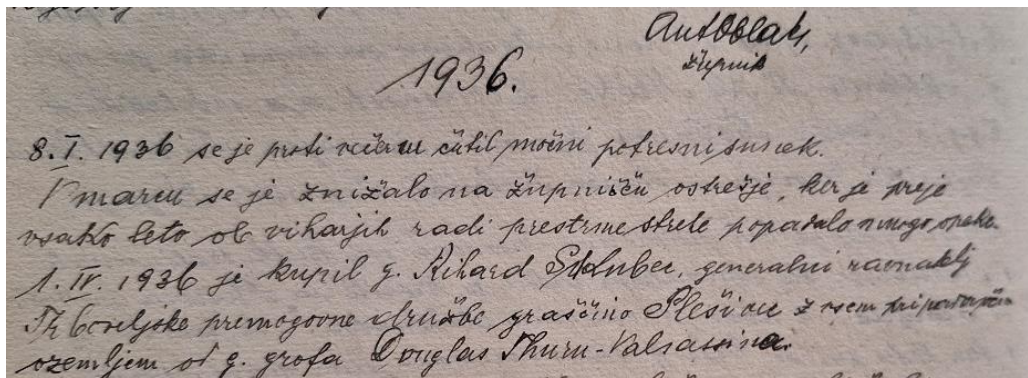 Ant Oblak,
župnik
1936.
8. I. 1936 se je proti večeru čutil močni potresni sunek.
V marcu se je znižalo na župnišču ostrešje, ker je preje
vsako leto ob viharjih radi prestrme strehe popadalo mnogo opeke.
1. IV. 1936 je kupil g. Rihard generalni ravnatelj
Trboveljske premogovne družbe graščino Plešivec z vsem
ozemljem od g. grofa Douglas Thurn-Valsassina.